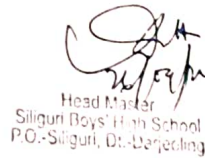 Head Master
Siliguri Boys' High School
P.O.-Siliguri, Dt.-Darjeeling